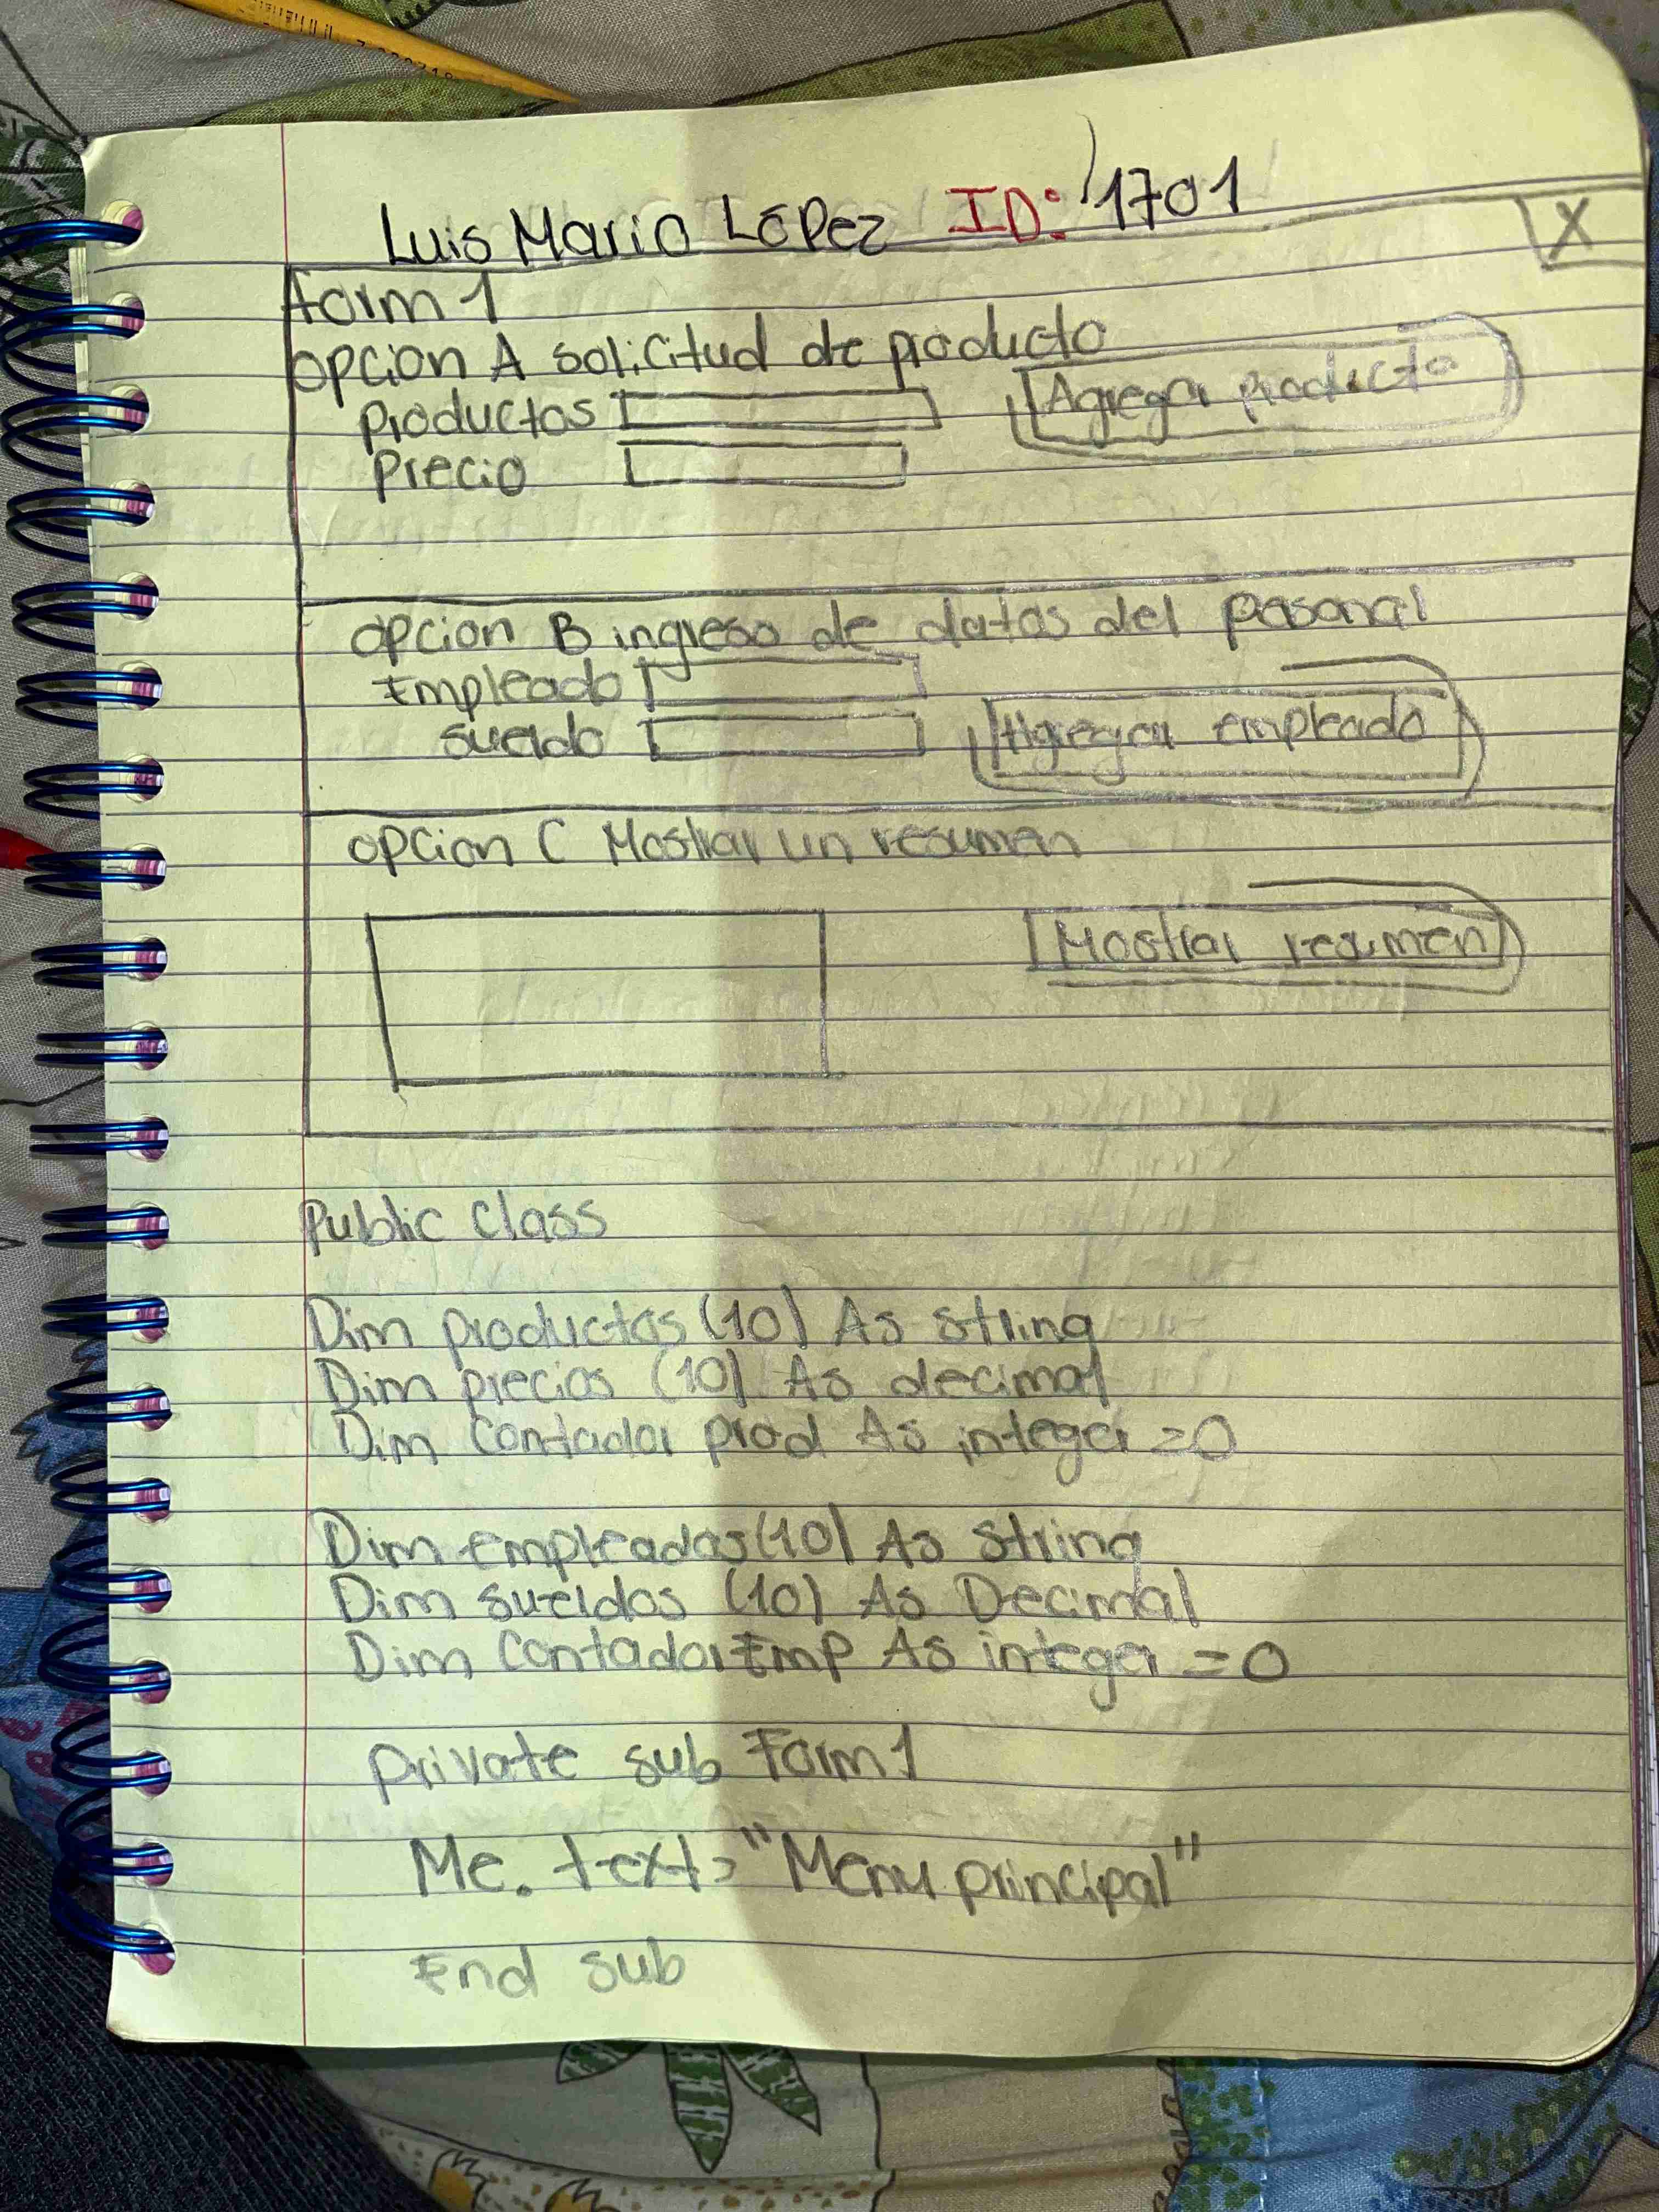 Luis Mario López ID: 1701
X
Form 1
opcion A solicitud de producto
Productos Agregar producto
Precio
opcion B ingreso de datos del pesonal
Empleado
sueldo Agregar empleado
opcion C Mostrar un resumen
Mostrar resumen
Public class
Dim productos (10) As string
Dim precios (10) As decimal
Dim contador prod As integer = 0
Dim empleados (10) As String
Dim sueldos (10) As Decimal
Dim ContadorEmp As integer = 0
private sub Form 1
Me. text = "Menu principal"
End sub